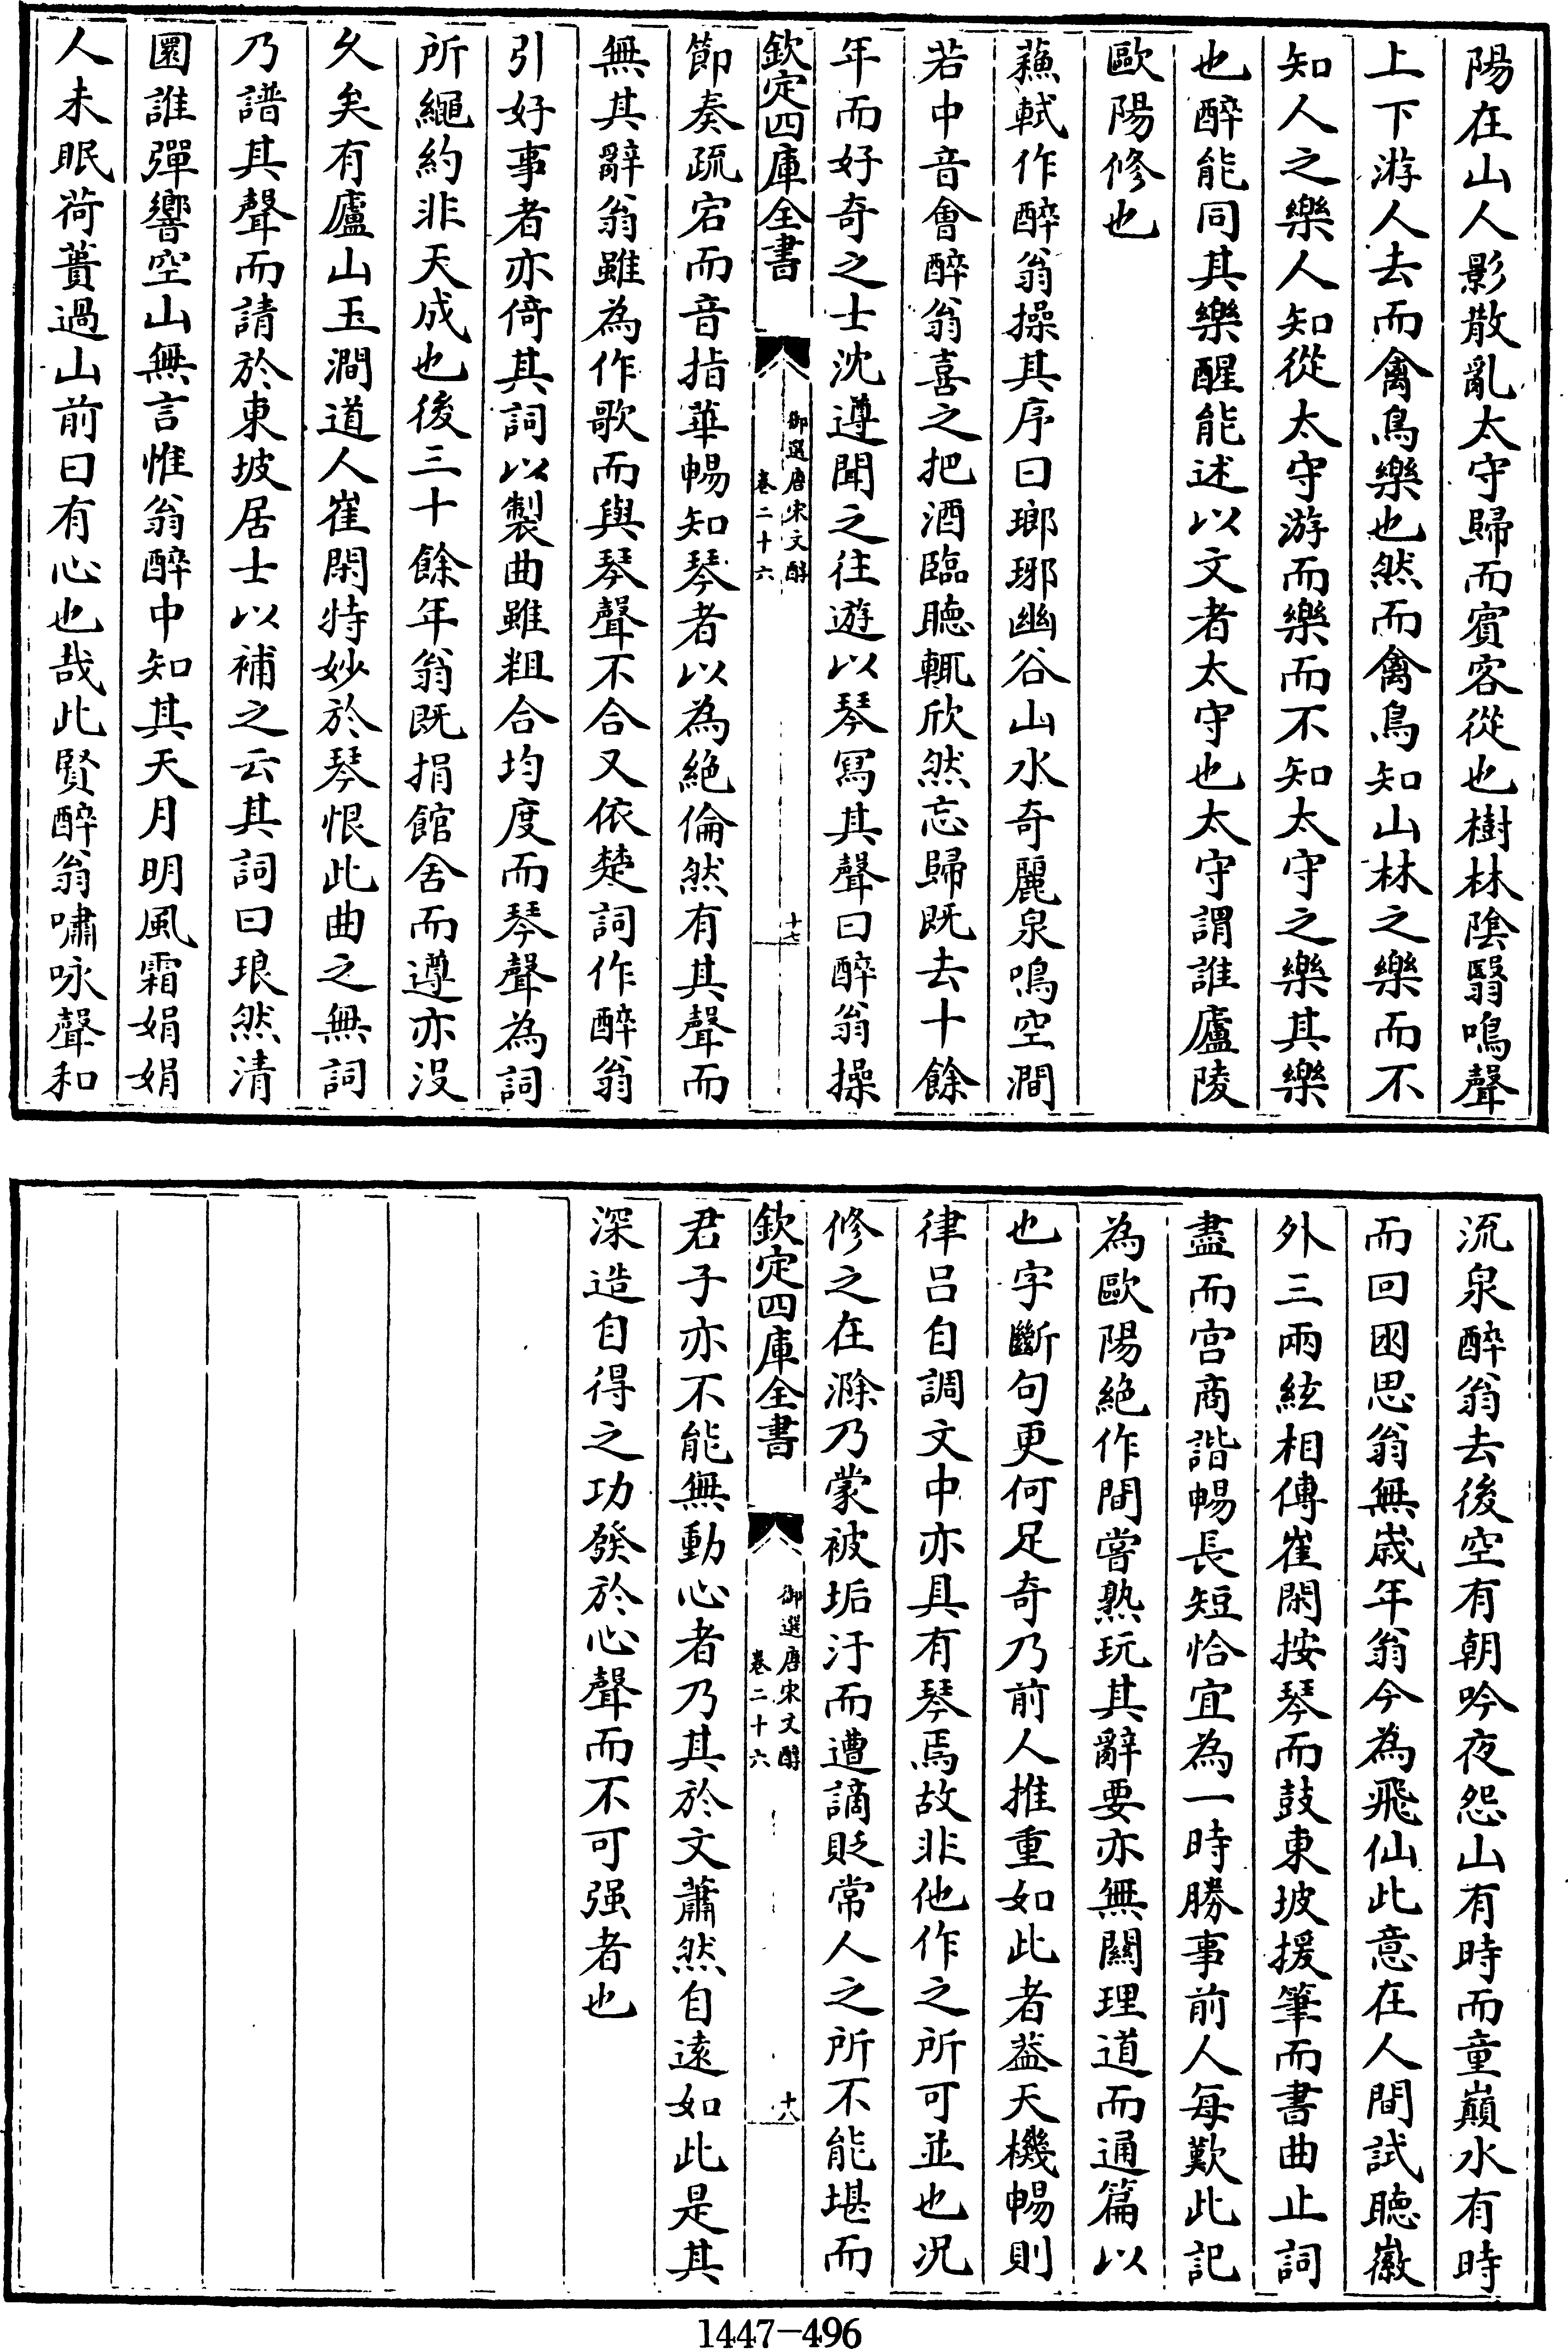 陽在山人影散亂太守歸而賓客從也樹林陰翳鳴聲
上下游人去而禽鳥樂也然而禽鳥知山林之樂而不
知人之樂人知從太守游而樂而不知太守之樂其樂
也醉能同其樂醒能述以文者太守也太守謂誰廬陵
歐陽修也
蘇軾作醉翁操其序曰瑯琊幽谷山水奇麗泉鳴空澗
若中音會醉翁喜之把酒臨聽輒欣然忘歸既去十餘
年而好奇之士沈遵聞之往遊以琴冩其聲曰醉翁操
欽定四庫全書
御選唐宋文醇
卷二十六
十七
節奏疏宕而音指華暢知琴者以為絶倫然有其聲而
無其辭翁雖為作歌而與琴聲不合又依楚詞作醉翁
引好事者亦倚其詞以製曲雖粗合均度而琴聲為詞
所繩約非天成也後三十餘年翁既捐館舍而遵亦没
久矣有廬山玉澗道人崔閑特妙於琴恨此曲之無詞
乃譜其聲而請於東坡居士以補之云其詞曰琅然清
圜誰彈響空山無言惟翁醉中知其天月明風霜娟娟
人未眠荷蕢過山前曰有心也哉此賢醉翁嘯咏聲和
流泉醉翁去後空有朝吟夜怨山有時而童巔水有時
而回囦思翁無嵗年翁今為飛仙此意在人間試聽徽
外三兩絃相傳崔閑按琴而鼓東坡援筆而書曲止詞
盡而宫商諧暢長短恰宜為一時勝事前人每歎此記
為歐陽絶作間嘗熟玩其辭要亦無關理道而通篇以
也字斷句更何足奇乃前人推重如此者葢天機暢則
律吕自調文中亦具有琴焉故非他作之所可並也况
修之在滁乃蒙被垢汙而遭謫貶常人之所不能堪而
欽定四庫全書
御選唐宋文醇
卷二十六
十八
君子亦不能無動心者乃其於文蕭然自遠如此是其
深造自得之功發於心聲而不可强者也
1447-496